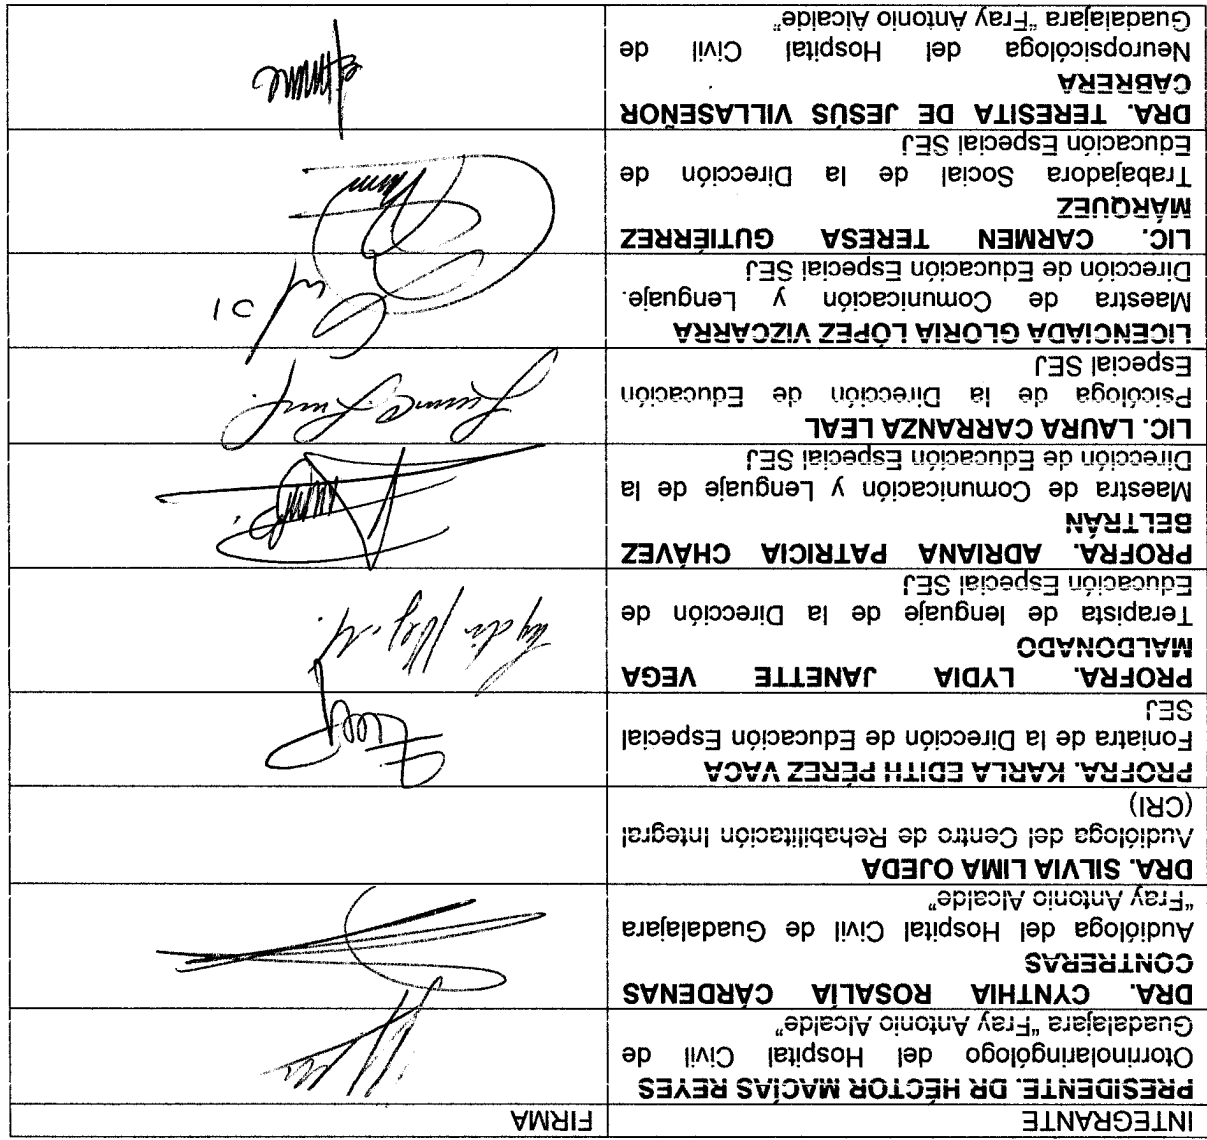 INTEGRANTE
FIRMA
PRESIDENTE. DR HÉCTOR MACÍAS REYES
Otorrinolaringólogo del Hospital Civil de
Guadalajara "Fray Antonio Alcalde"
DRA. CYNTHIA ROSALÍA CÁRDENAS
CONTRERAS
Audióloga del Hospital Civil de Guadalajara
"Fray Antonio Alcalde"
DRA. SILVIA LIMA OJEDA
Audióloga del Centro de Rehabilitación Integral
(CRI)
PROFRA. KARLA EDITH PÉREZ VACA
Foniatra de la Dirección de Educación Especial
SEJ
PROFRA. LYDIA JANETTE VEGA
MALDONADO
Terapista de lenguaje de la Dirección de
Educación Especial SEJ
PROFRA. ADRIANA PATRICIA CHÁVEZ
BELTRÁN
Maestra de Comunicación y Lenguaje de la
Dirección de Educación Especial SEJ
LIC. LAURA CARRANZA LEAL
Psicóloga de la Dirección de Educación
Especial SEJ
LICENCIADA GLORIA LÓPEZ VIZCARRA
Maestra de Comunicación y Lenguaje.
Dirección de Educación Especial SEJ
LIC. CARMEN TERESA GUTIÉRREZ
MÁRQUEZ
Trabajadora Social de la Dirección de
Educación Especial SEJ
DRA. TERESITA DE JESÚS VILLASEÑOR
CABRERA
Neuropsicóloga del Hospital Civil de
Guadalajara "Fray Antonio Alcalde"